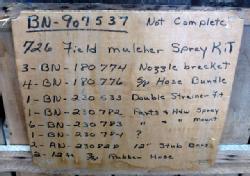 BN-907537 Not Complete
726 Field mulcher Spray KiT
3-BN-180774 Nozzle brecket
4-BN-180776 Hose Bundle
1-BN-230533 Double Strainer
1-BN-230782 Parts Spray
6-BN-230783 " " mount
1-BN-230784 ?
2-AN-230820 12" Stub Boom
2-12 Rubber Hose